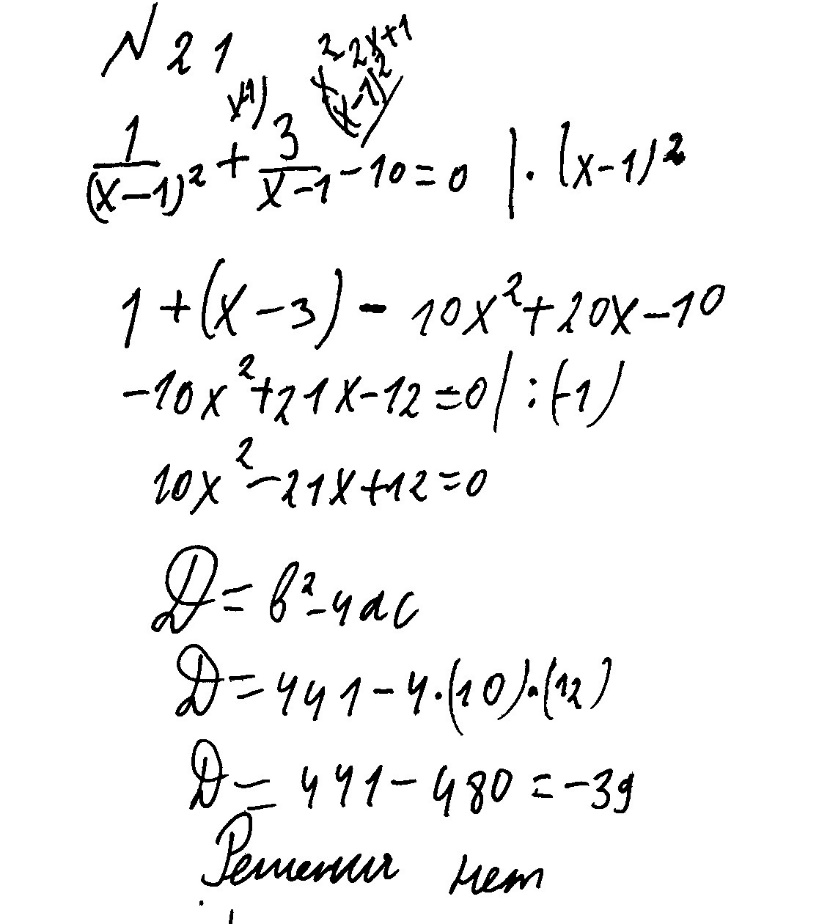 N 21
x-1) x² 2x+1
(x-1)²
1/(x-1)² + 3/(x-1) - 10 = 0 | · (x-1)²
1 + (x-3) - 10x² + 20x - 10
-10x² + 21x - 12 = 0 | : (-1)
10x² - 21x + 12 = 0
D = b² - 4ac
D = 441 - 4·(10)·(12)
D = 441 - 480 = -39
Решения нет